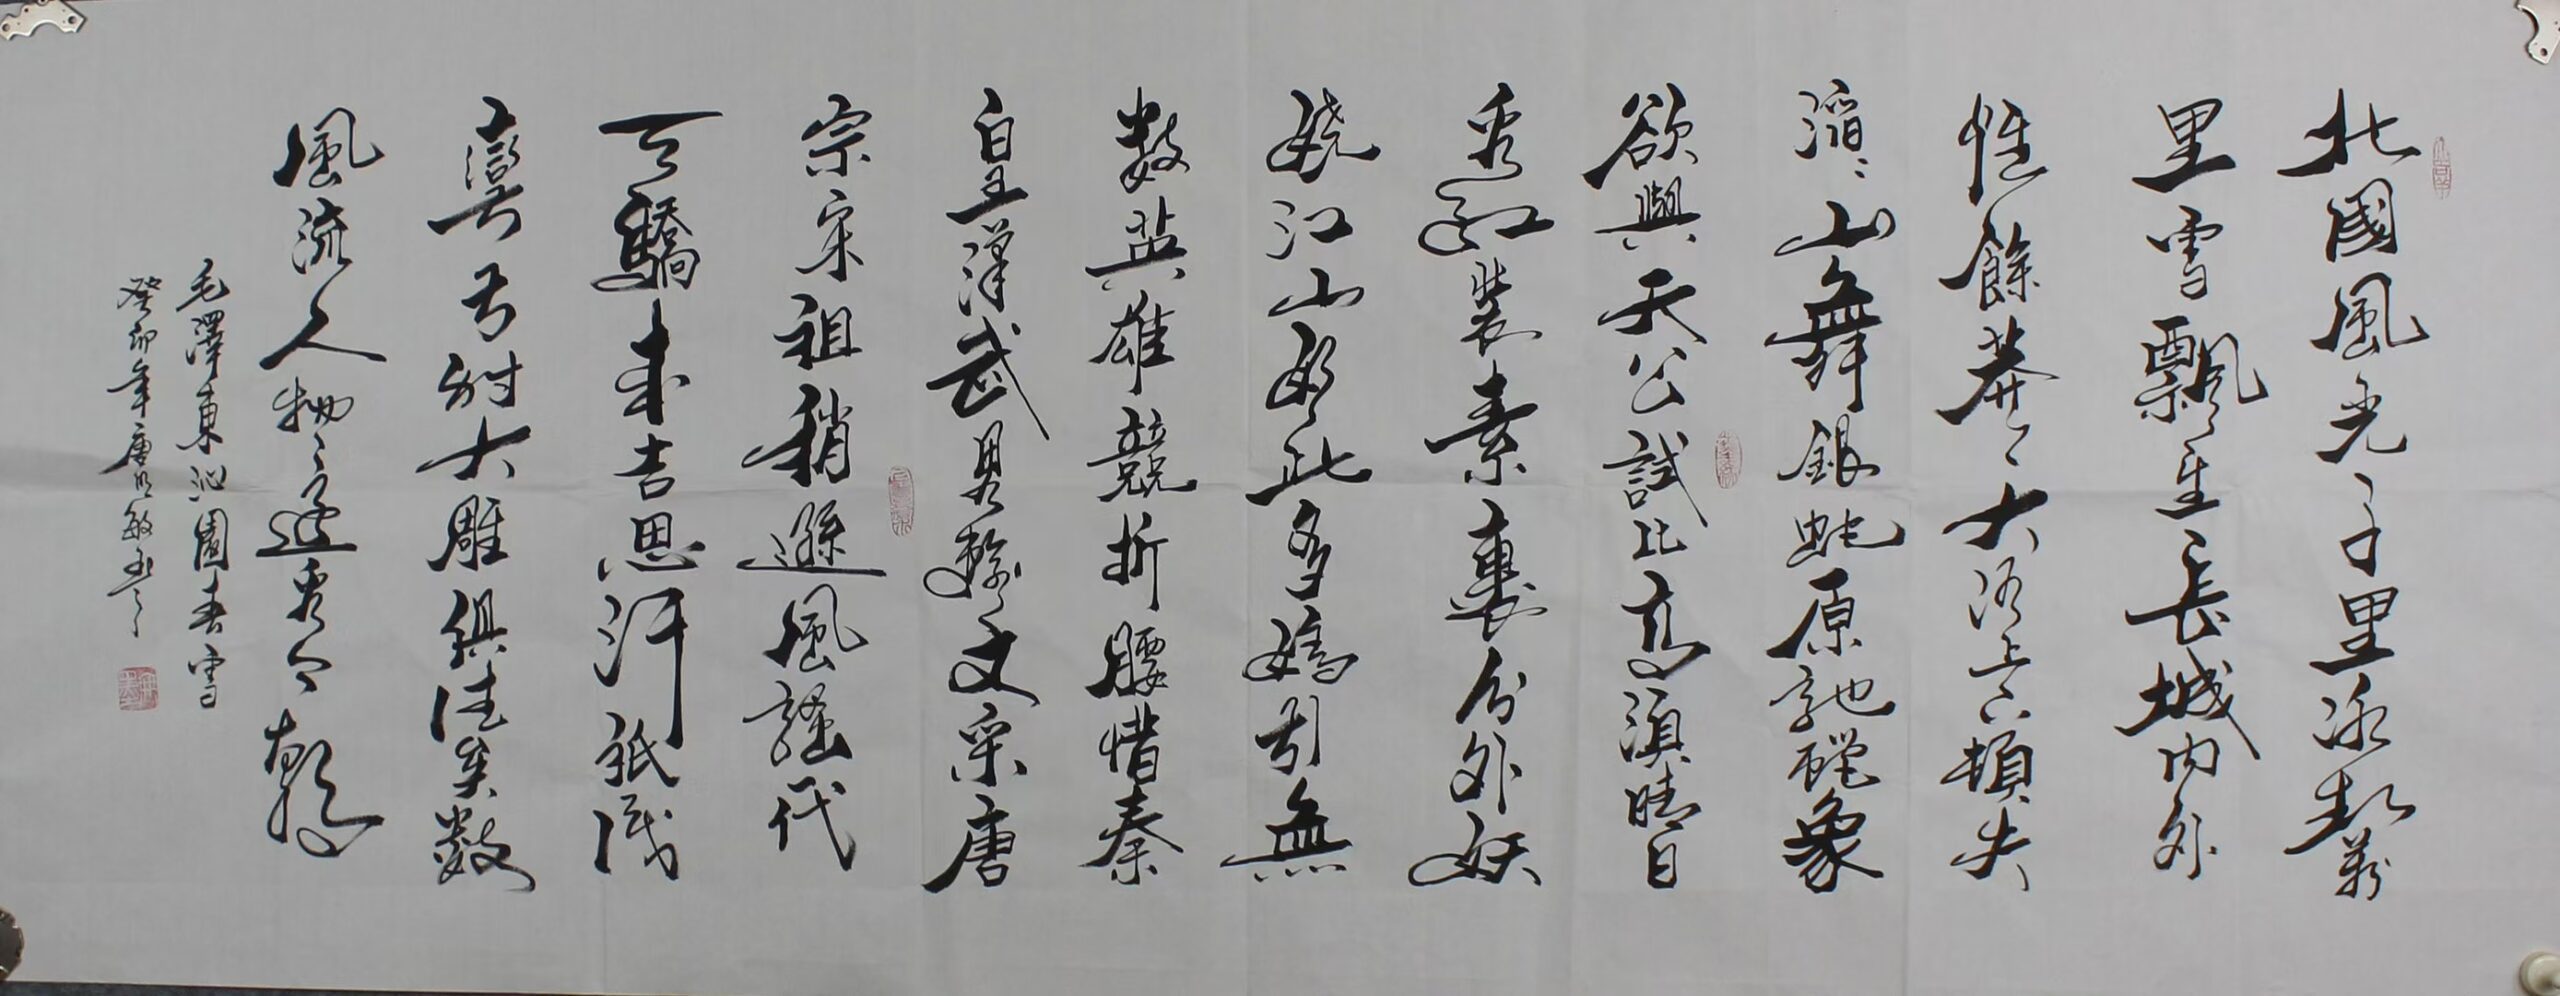 北國風光千里冰封萬
里雪飄望長城內外
惟餘莽〻大河上下頓失
滔〻山舞銀蛇原馳蠟象
欲與天公試比高須晴日
看紅裝素裹分外妖
嬈江山如此多嬌引無
數英雄競折腰惜秦
皇漢武略輸文采唐
宗宋祖稍遜風騷代
天驕成吉思汗祇識
彎弓射大雕俱往矣數
風流人物還看今朝
毛澤東沁園春雪
癸卯年唐敏書